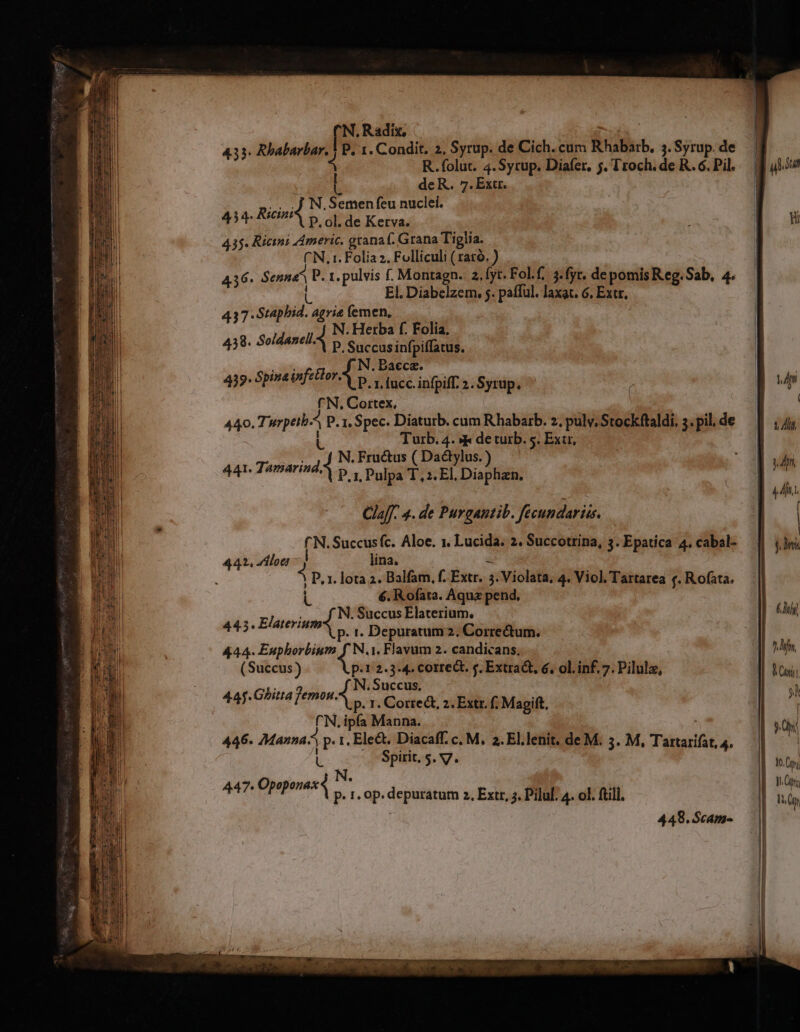 N. Radix,
433. Rhabarbar. P. 1. Condit. 2. Syrup. de Cich. cum Rhabarb. 3. Syrup. de
R. ſolut. 4. Syrup. Diaſer. 5. Troch. de R. 6. Pil.
de R. 7. Extr.
434. Ricini N. Semen ſeu nuclei.
P. ol. de Kerva.
435. Ricini Americ. grana ſ. Grana Tiglia.
N. 1. Folia 2. Folliculi (rarò.)
436. Sennæ P. 1. pulvis ſ. Montagn. 2. ſyr. Fol. ſ. 3. ſyr. de pomis Reg. Sab. 4.
El. Diabelzem. 5. paſſul. laxat. 6. Extr.
437. Staphid. agriæ ſemen,
438. Soldanell. N. Herba ſ. Folia.
P. Succus inſpiſſatus.
439. Spina infectior. N. Baccæ.
P. 1. ſucc. inſpiſſ. 2. Syrup.
N. Cortex,
440. Turpeth. P. 1. Spec. Diaturb. cum Rhabarb. 2. pulv. Stockſtaldi. 3. pil. de
Turb. 4. de turb. 5. Extr.
441. Tamarind. N. Fructus (Dactylus.)
P. 1. Pulpa T. 2. El. Diaphæn.
Claſſ. 4. de Purgantib. ſecundariis.
N. Succus ſc. Aloe. 1. Lucida. 2. Succotrina, 3. Epatica 4. cabal-
442. Aloes lina.
P. 1. lota 2. Balſam. ſ. Extr. 3. Violata. 4. Viol. Tartarea 5. Roſata.
6. Roſata. Aquæ pend.
443. Elaterium N. Succus Elaterium.
p. 1. Depuratum 2. Correctum.
444. Euphorbium N. 1. Flavum 2. candicans.
(Succus) p. 1 2. 3. 4. correct. 5. Extract. 6. ol. inf. 7. Pilulæ,
445. Ghitta Jemou. N. Succus.
p. 1. Correct. 2. Extr. ſ. Magiſt.
N. ipſa Manna.
446. Manna. p. 1. Elect. Diacaſſ. c. M. 2. El. lenit. de M. 3. M. Tartariſat. 4.
Spirit. 5. 🜄.
447. Opoponax N.
p. 1. op. depuratum 2. Extr. 3. Piluſ. 4. ol. ſtill.
448. Scam-